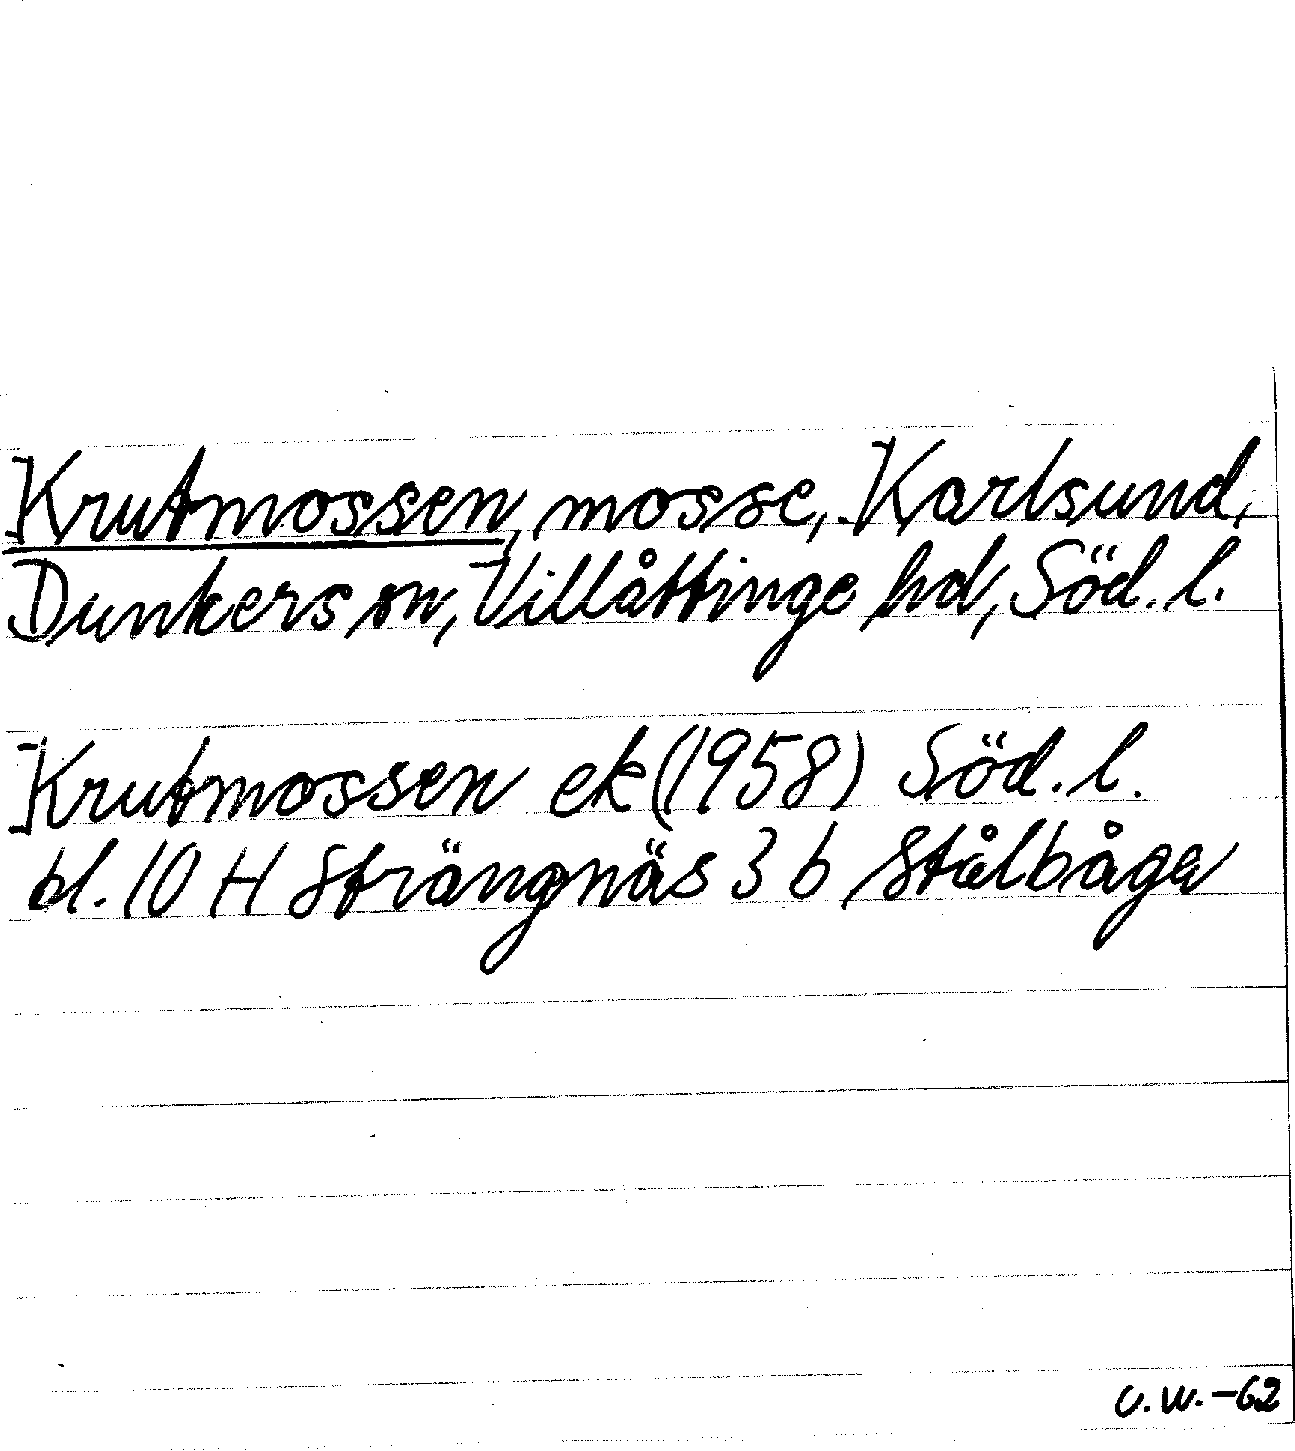 Krutmossen, mosse, Karlsund,
Dunkers sn, Villåttinge hd, Söd. l.
Krutmossen ek (1958) Söd. l.
bl. 10 H Strängnäs 3 b Stålbåga
U. W. -62